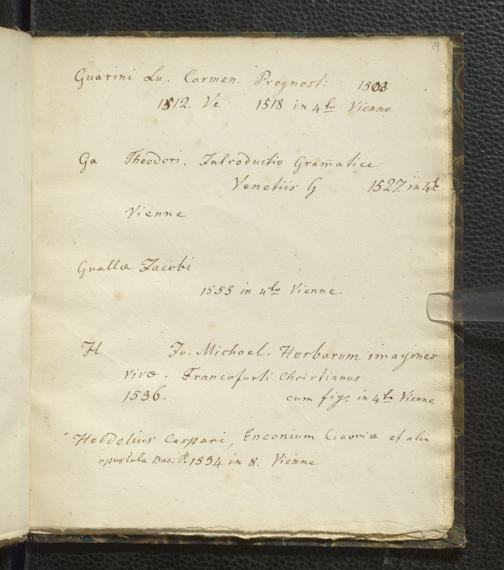 Guarini Lu. Carmen. Prognost: 1503
1512. Ve 1518 in 4to Vienne
Ga Theodori. Introductio Gramatice
Venetiis G 1527. in 4to
Vienne
Guallæ Jacobi
1555 in 4to Vienne.
H Jo. Michael. Herbarum imagines
vivæ. Francofurti Christianus
1536. cum fig. in 4to Vienne
Heldelius Caspari, Enconium Cicoriæ et alia
opuscula Bas. P. 1534 in 8. Vienne